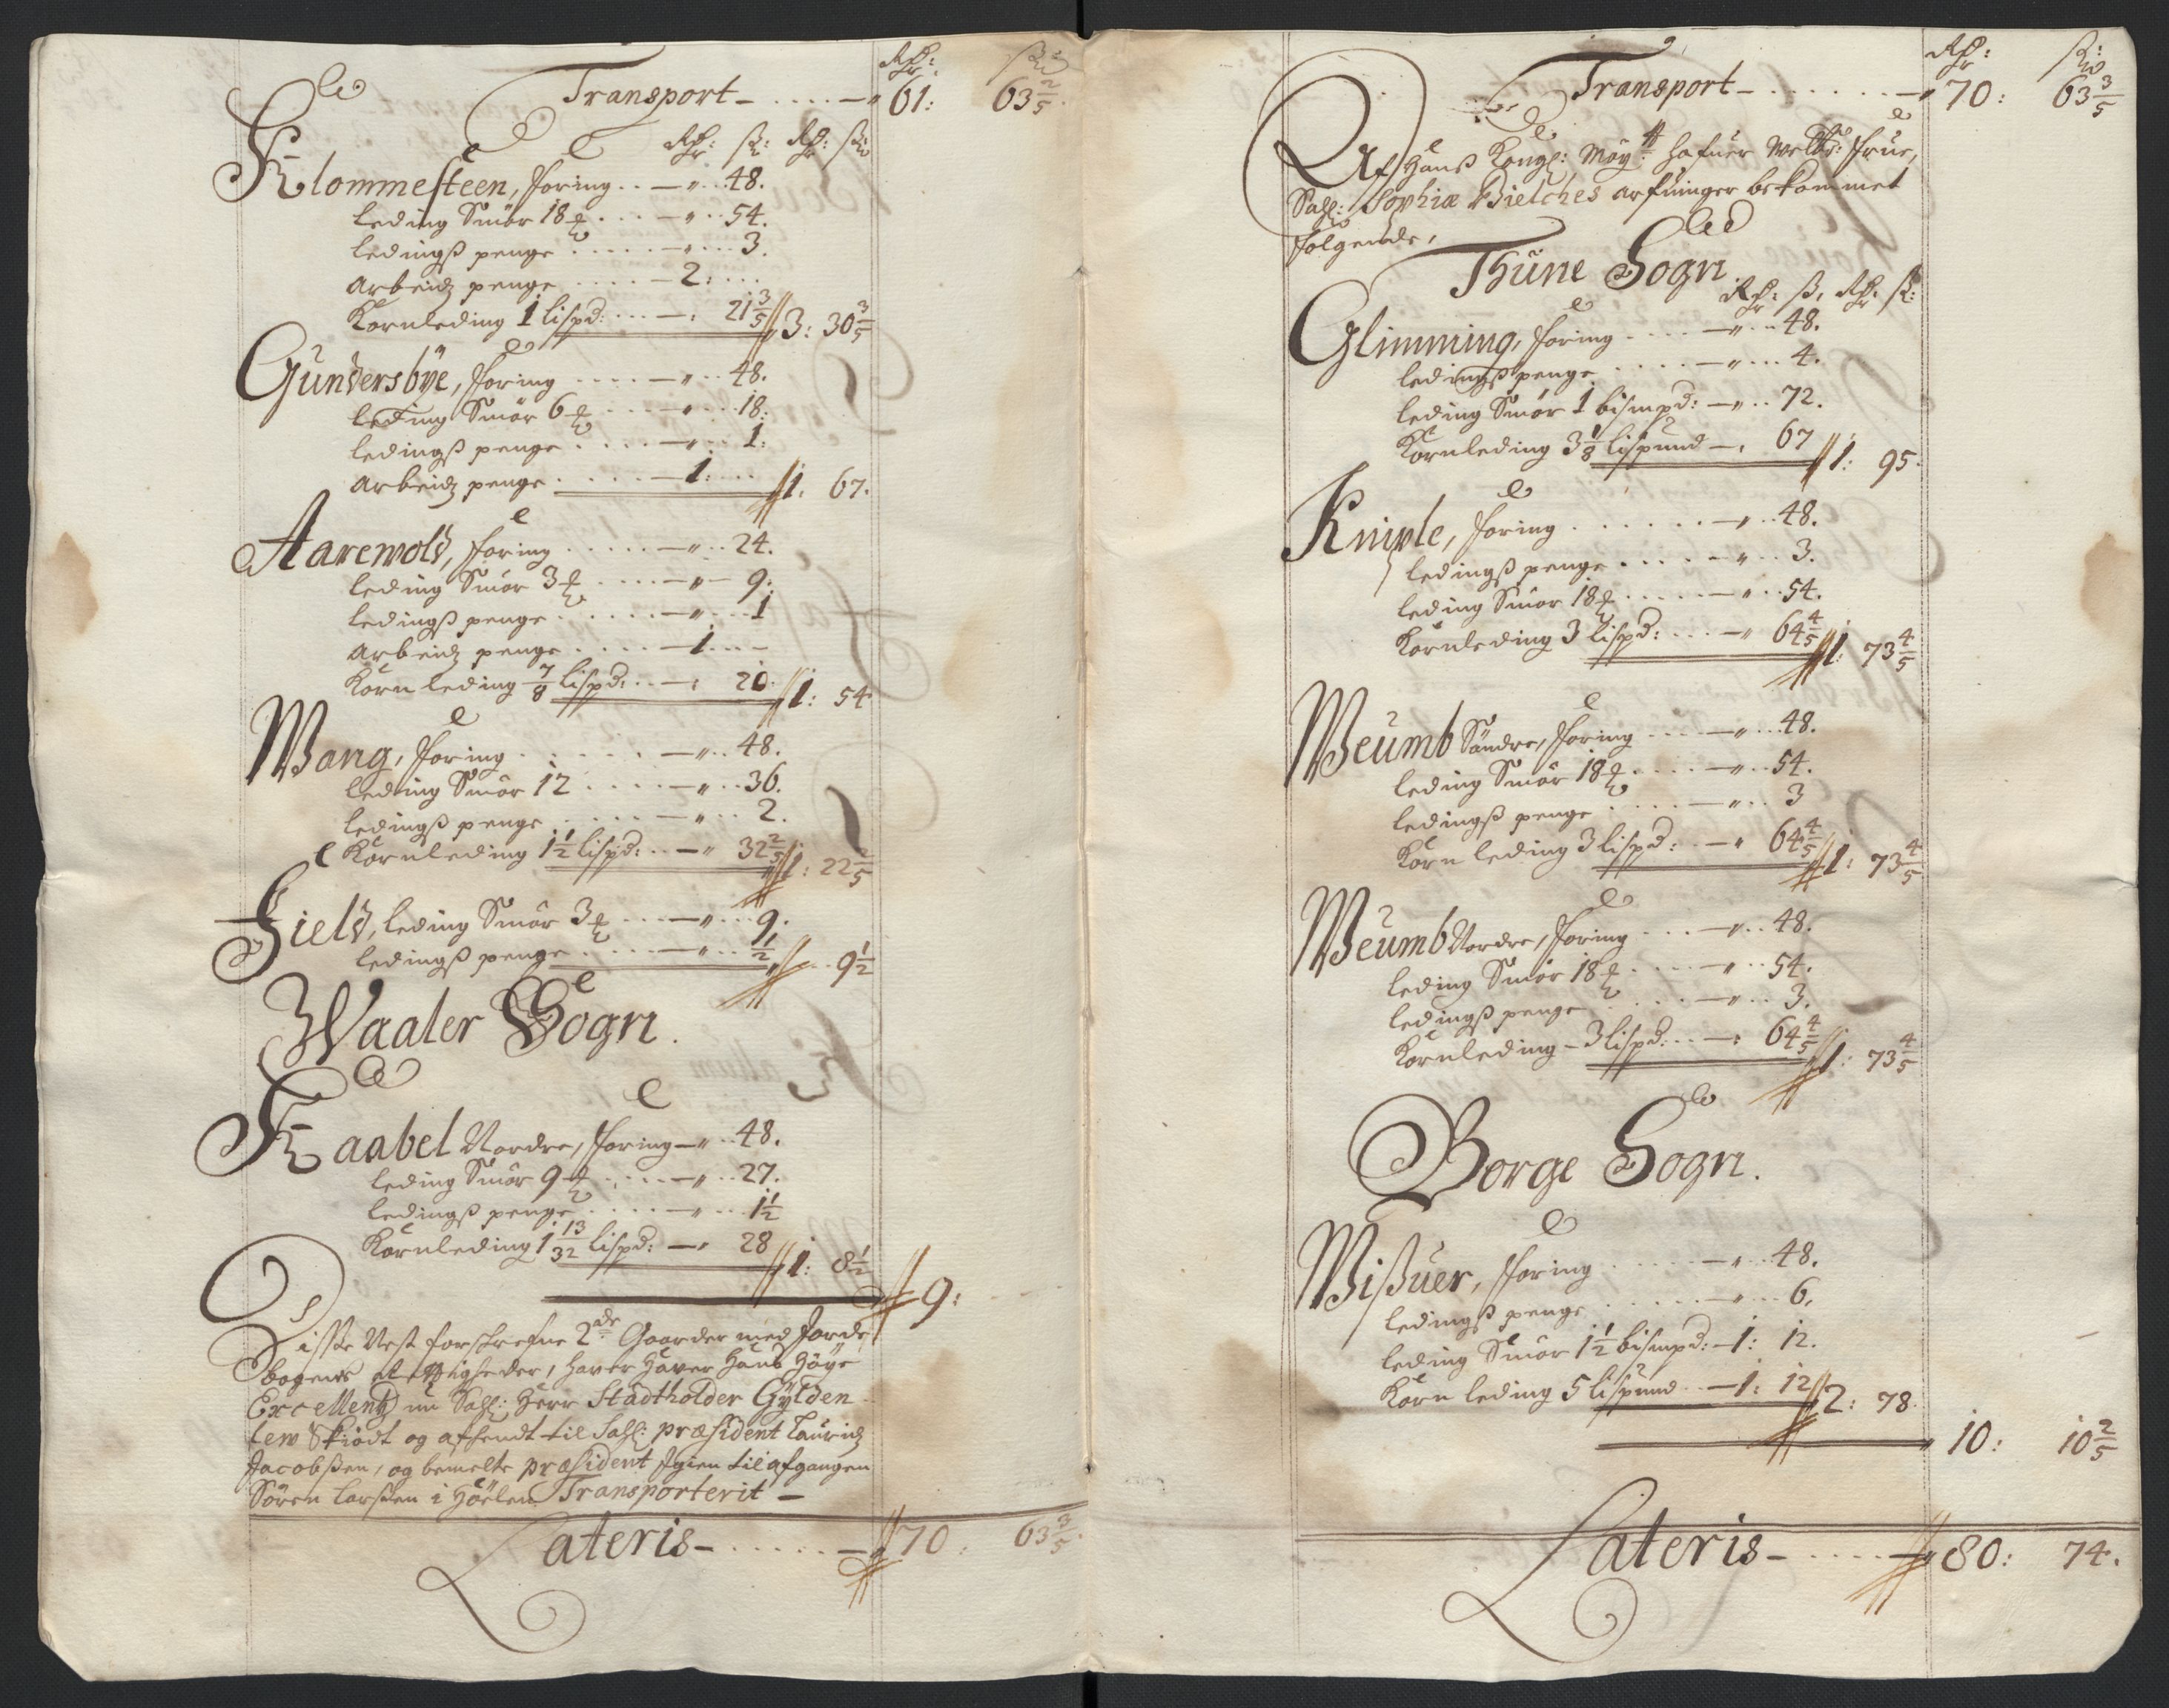 Rdr: ß:
Transport - 61: 63 2/5.
Rdr: ß: Rdr: ß
Klommesteen, foring - " 48.
leding Smör 18 ℔ - " 54.
ledingß penge - " 3.
Arbeidz penge - 2:
Kornleding 1 lispd: - : 21 3/5 3: 30 3/5
Gundersbye, foring - " 48.
leding Smör 6 ℔ - " 18:
ledingß penge - " 1:
Arbeidz penge - 1: 1: 67.
Aarewold, foring - " 24.
leding Smör 3 ℔ - " 9:
ledingß penge - " 1
Arbeidz penge - 1
Korn leding 7/8 lispd: - : 20. 1: 54
Wang, foring - " 48.
leding Smör 12 - " 36.
ledingß penge - " 2.
Kornleding 1 1/2 lispd: - " 32 2/5 1: 22 2/5
Field, leding Smör 3 ℔ - " 9.
ledingß penge - " 1/2 9 1/2
Waaler Sogn.
Kaabel Nordre, foring - " 48.
leding Smör 9 ℔ - " 27.
ledingß penge - " 1 1/2
Kornleding 1 13/32 lispd: - " 28 1: 8 1/2
9:
Disse Nest forskrefne 2de Gaarder med Jorde
bogens Rettigheder, haver Hanß Höye
Excellentz nu Sahl: Herr Stadtholder Gylden
lew Skiödt og afhendt til Sahl: præsident Lauridz
Jacobßen, og bemelte præsident igien til afgangen
Sören Larsen i Hölen Transporterit -
Lateris - 70: 63 3/5.
Rdr: ß:
Transport - " 70: 63 3/5
Af Hanß Kongl: May:tt hafuer Welb: frue,
Sahl: Sophiæ Bielches arfuinger bekommet
folgende,
Thune Sogn
Rdr: ß, Rdr: ß:
Glimming, foring - " 48.
ledingß penge - " 4.
leding Smör 1 bismpd: - " 72.
Kornleding 3 1/8 lispund - : 67 1: 95.
Kniple, foring - " 48.
ledingß penge - " 3.
leding Smör 18 ℔ - " 54.
Kornleding 3 lispd: - " 64 4/5 1: 73 4/5
Weumb Söndre, foring - " 48.
leding Smör 18 ℔ - " 54.
ledingß penge - " 3
Korn leding 3 lispd: - " 64 4/5 1: 73 4/5
Weumb Nordre, foring - " 48.
leding Smör 18 ℔ - " 54.
ledingß penge - " 3.
Kornleding - 3 lispd: - : 64 4/5 1: 73 4/5
Borge Sogn.
Wißuer, foring - " 48.
ledingß penge - " 6.
leding Smör 1 1/2 bismpd: - 1: 12.
Korn leding 5 lispund - 1: 12 2: 78.
10: 10 2/5
Lateris - 80: 74.